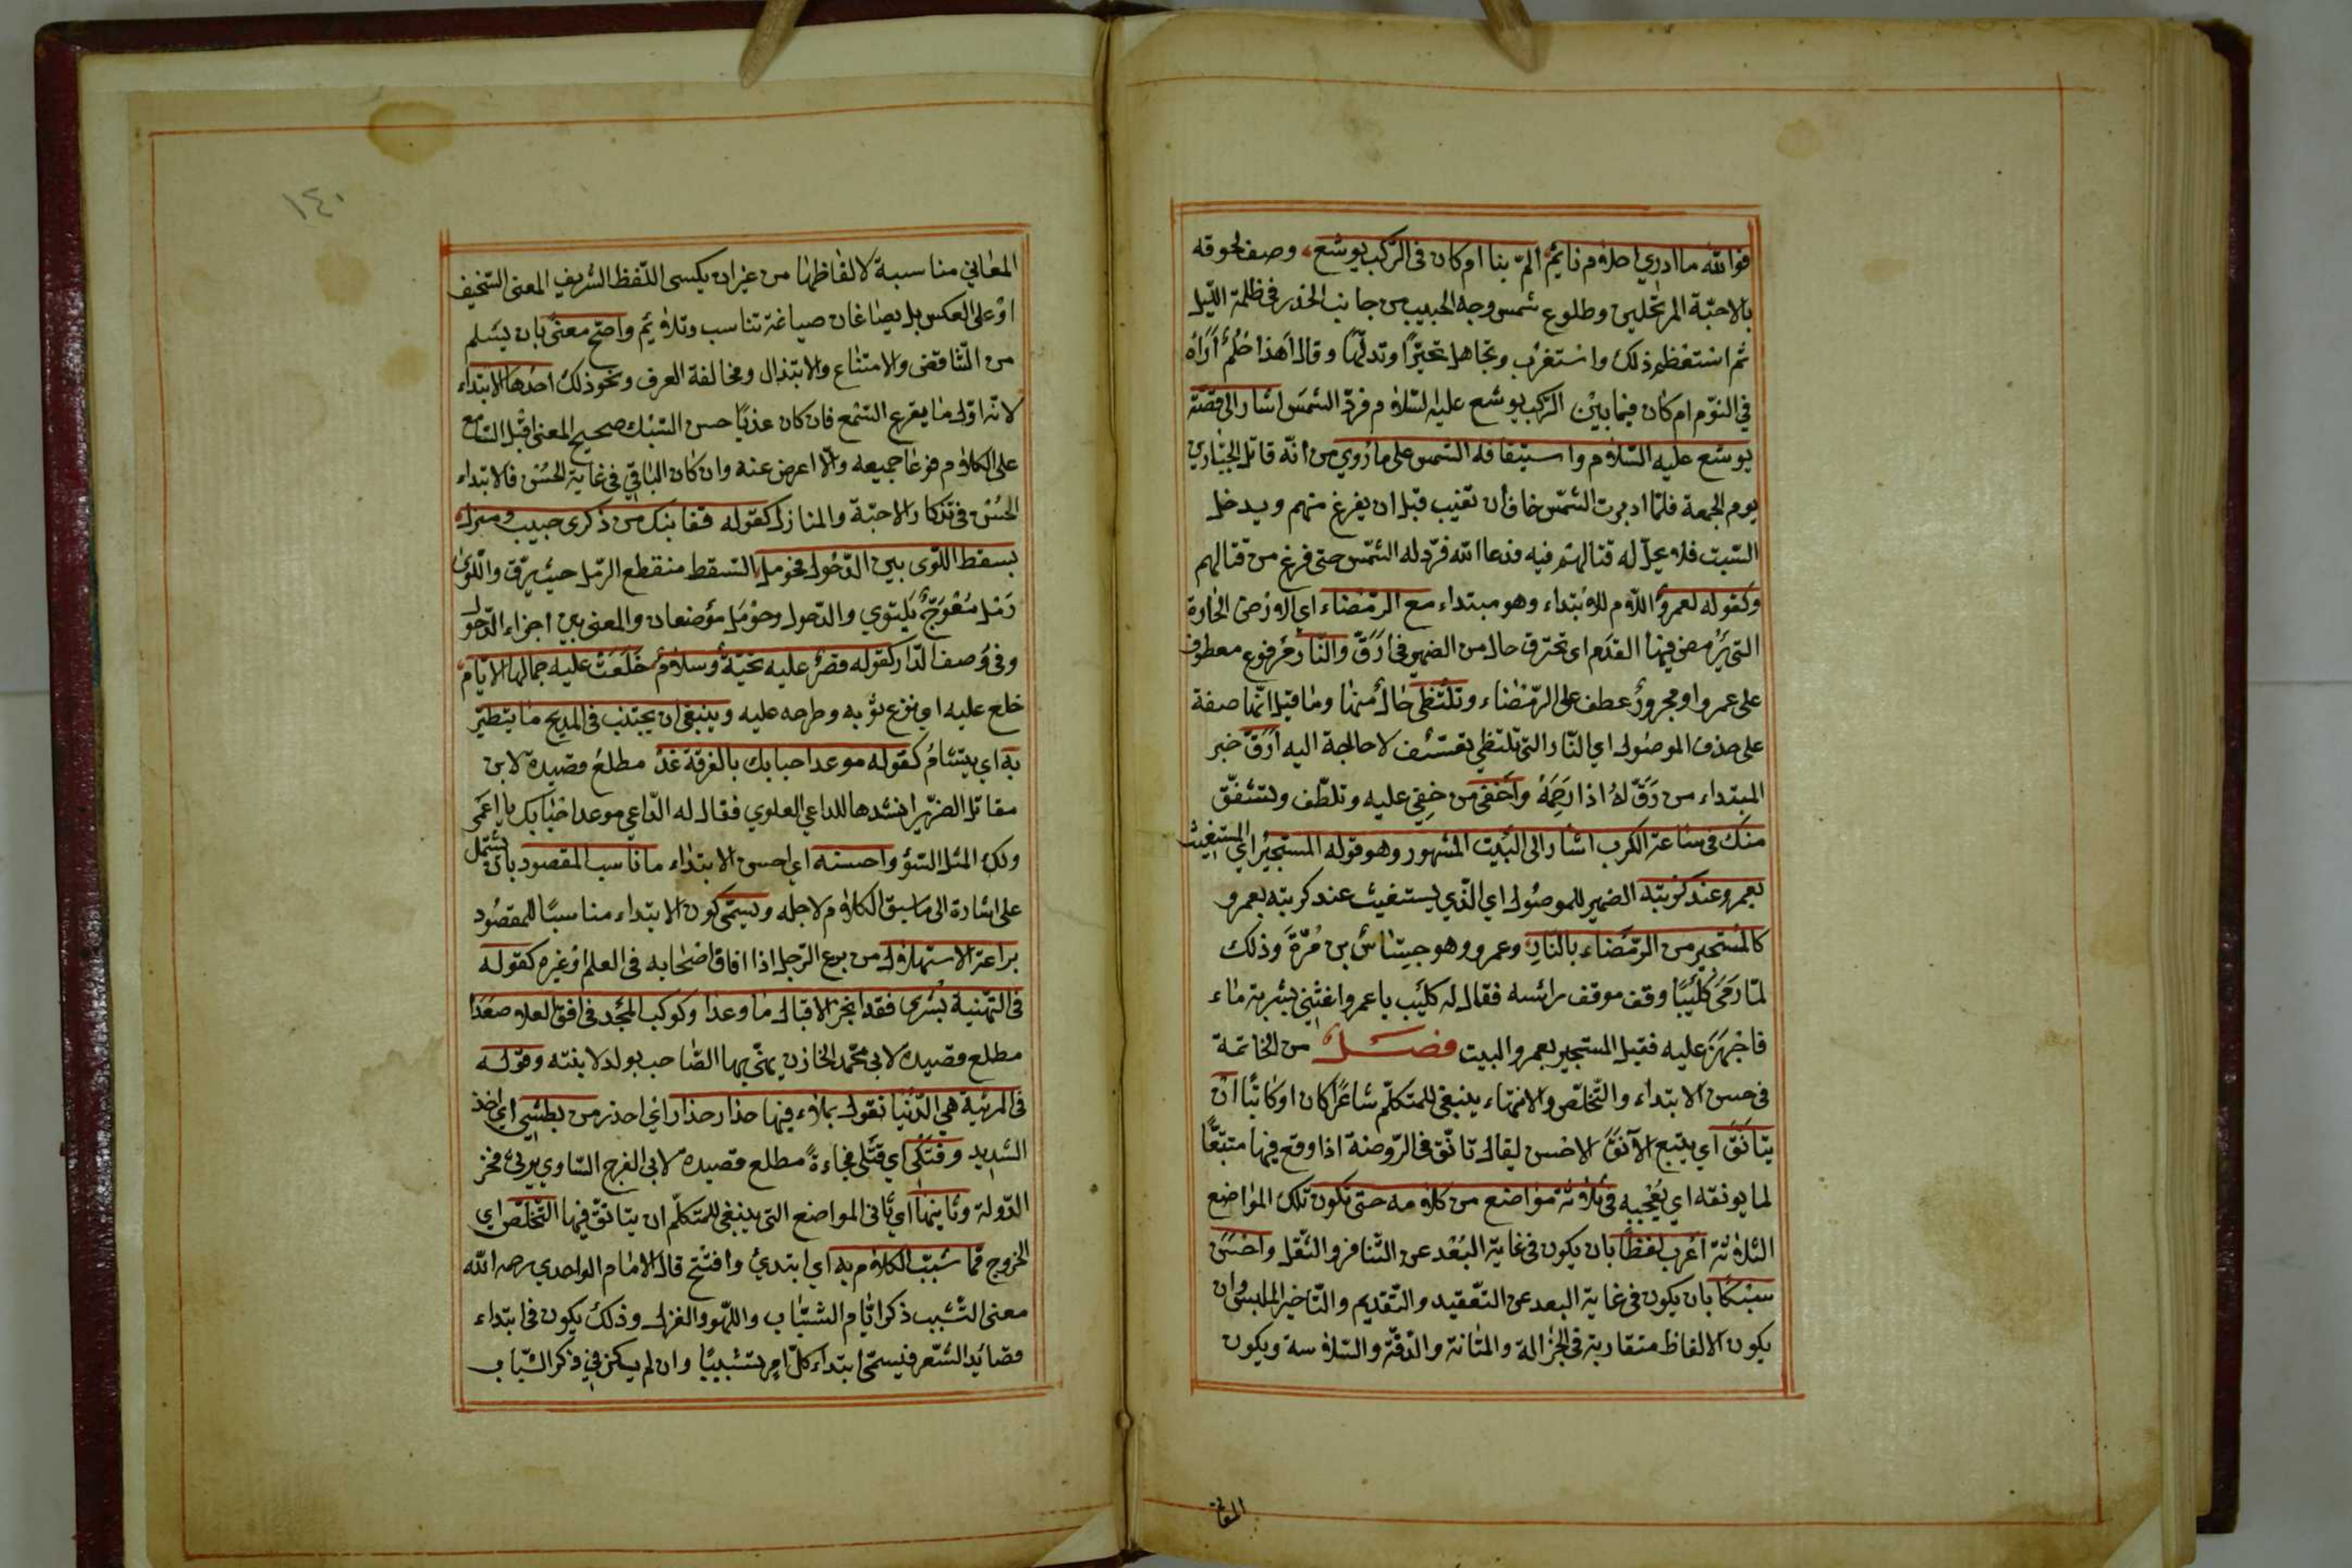 فوالله ما ادري احلام نايم المّ بنا ام كان في الركب يوشع وصف لحوقه
بالاحبّة المرتحلين وطلوع شمس وجه الحبيب من جانب الخدر في ظلمة الليل
ثم استعظم ذلك واستغرب وتجاهل تحيّرًا وتدلّهًا وقال أهذا حُلُمٌ أراه
في النوم ام كان فيما بين الركب يوشع عليه السلام فردّ الشمس اشار الى قصّة
يوشع عليه السلام واستيقافه الشمس على ما رُوي من أنّه قاتل الجبّارين
يوم الجمعة فلمّا ادبرت الشمس خاف أن تغيب قبل ان يفرغ منهم ويدخل
السبت فلا يحلّ له قتالهم فيه فدعا الله فردّ له الشمس حتى فرغ من قتالهم
وكقوله لعمروٌ اللام للابتداء وهو مبتداء مع الرمضاء اي الارض الحارة
التي يَرمض فيها القدَم اي تحترق حال من الضمير في ارقّ والنار مرفوع معطوف
على عمرو او مجرورٌ عطف على الرمضاء وتلتظى حالٌ منها وما قيل انّها صفة
على حذف الموصول اي النار التي تلتظي تعسّف لا حاجة اليه أرقّ خبر
المبتداء من رَقّ لهُ اذا رحِمَهُ وأحفى من حفِيَ عليه وتلطّف وتشفّق
منك في ساعة الكرب اشار الى البيت المشهور وهو قوله المستجير اي المستغيث
بعمرو عند كربته الضمير للموصول اي الذي يستغيث عند كربته بعمرو
كالمستجير من الرمضاء بالنار وعمرو وهو جساس بن مُرّة وذلك
لمّا رمى كُلَيبًا وقف موقف رأسه فقال له كليب يا عمرو اغثني بشربة ماء
فاجهزَ عليه فقيل المستجير بعمرو البيت فصل من الخاتمة
في حسن الابتداء والتخلّص والانتهاء ينبغي للمتكلّم شاعرًا كان او كاتبًا ان
يتأنّقَ اي يتبع الآنقَ الاحسن يقال تأنّق في الروضة اذا وقع فيها متتبّعًا
لما يونقه اي يُعْجبه في ثلاثة مواضع من كلامه حتى تكون تلك المواضع
الثلاثة أعرب لفظًا بان يكون في غاية البُعْد عن التنافر والثقل واحسَنَ
سبْكًا بان يكون في غاية البعد عن التعقيد والتقديم والتاخير الملبس وان
يكون الالفاظ متقاربة في الجزالة والمتانة والدقّة والسلاسة ويكون
المعا
١٤٠
المعاني مناسبة لالفاظها من غير ان يكسى اللفظ الشريف المعنى السخيف
او على العكس بل يصاغان صياغة تناسب وتلائم واصحّ معنى بان يسلم
من التناقض والامتناع والابتذال ومخالفة العرف ونحو ذلك احدها الابتداء
لانّه اوّل ما يقرع السمع فان كان عذبًا حسن السبك صحيح المعنى اقبل السامع
على الكلام فوعا جميعه والّا اعرض عنه وان كان الباقي في غاية الحُسْن فالابتداء
الحسن في تذكار الاحبّة والمنازل كقوله قفا نبك من ذكرى حبيب ومنزل
بسقط اللوى بين الدّخول فحومل السقط منقطع الرمل حيث يرقّ واللوى
رَمْل مُعْوَجّ يَلتوي والدخول وحومل موضعان والمعنى بين اجزاء الدخول
وفي وصف الدار كقوله قصرٌ عليه تحيّةٌ وسلامٌ خَلَعَتْ عليه جمالها الايام
خلع عليه اي نزع ثوبه وطرحه عليه وينبغي ان يجتنب في المديح ما يتطيّر
به اي يتشأمُ كقوله موعد احبابك بالفرقة غدْ مطلع قصيدة لابن
مقاتل الضرير انشدها للداعي العلوي فقال له الداعي موعد احبابك يا اعمى
ولك المثل السوء واحسنه اي احسن الابتداء ما ناسب المقصود بان يشتمل
على اشارة الى ما سيق الكلام لاجله ويسمّى كون الابتداء مناسبًا للمقصود
براعة الاستهلال من برع الرجل اذا افاق اصحابه في العلم او غيره كقوله
في التهنية بُشرى فقد انجز الاقبال ما وعدا وكوكب المجد في افق العلا صعدا
مطلع قصيدة لابي محمد الخازن يهنّي بها الصاحب بولد لابنته وقوله
في المرثية هي الدنيا تقول بملاء فيها حذار حذار اي احذر من بطشي اي اخذ
الشديد وفتكي اي قتلي فجاءةً مطلع قصيدة لابي الفرج الساوي يرثي فخر
الدولة وثانيها اي ثاني المواضع التي ينبغي للمتكلّم ان يتانّق فيها التخلّص اي
الخروج ممّا شبّب الكلام به اي ابتديء وافتتح قال الامام الواحدي رحمه الله
معنى التشبيب ذكر ايّام الشباب واللهو والغزل وذلك يكون في ابتداء
قصائد الشعر فيسمّى ابتداء كلّ امر تشبيبًا وان لم يكن في ذكر الشباب